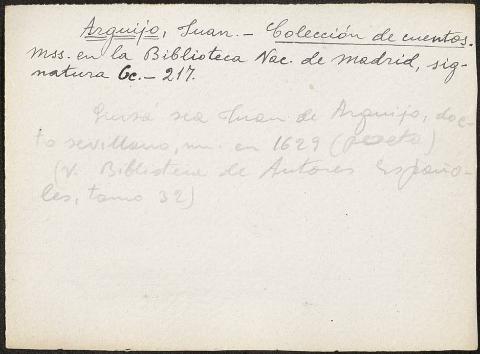 Arguijo, Juan. - Colección de cuentos.
Mss. en la Biblioteca Nac. de Madrid, sig-
natura Gc. - 217.
Quizá sea Juan de Arguijo, doc-
to sevillano, m. en 1629 (poeta)
(V. Biblioteca de Autores Españo-
les, tomo 32)